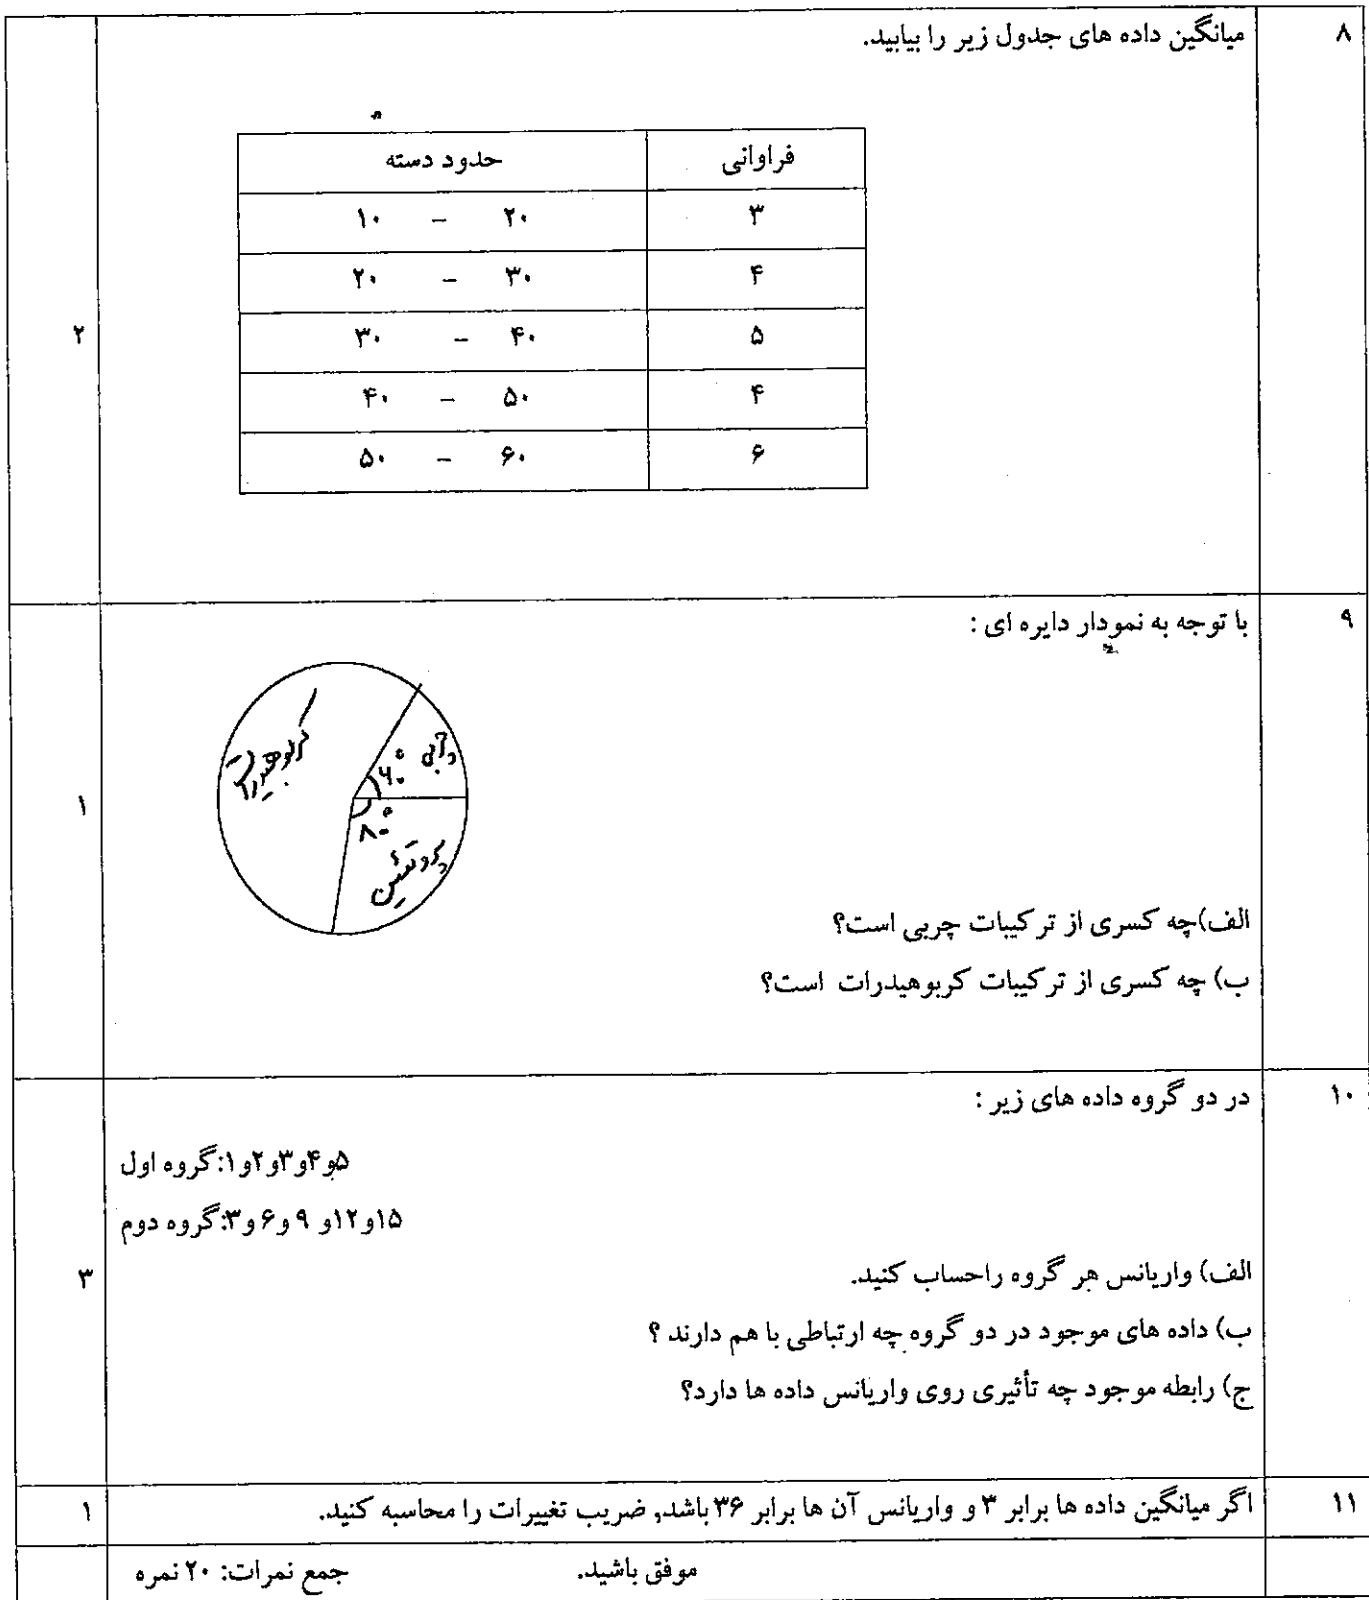 ۸ میانگین داده های جدول زیر را بیابید.
فراوانی حدود دسته
۳ ۱۰ - ۲۰
۴ ۲۰ - ۳۰
۵ ۳۰ - ۴۰
۴ ۴۰ - ۵۰
۶ ۵۰ - ۶۰
۲
۹ با توجه به نمودار دایره ای :
کربوهیدرات
چربی
۶۰°
۸۰°
پروتئین
۱
الف)چه کسری از ترکیبات چربی است؟
ب) چه کسری از ترکیبات کربوهیدرات است؟
۱۰ در دو گروه داده های زیر :
گروه اول:۱و۲و۳و۴و۵
گروه دوم:۳و۶ و۹ و۱۲و۱۵
الف) واریانس هر گروه راحساب کنید.
۳
ب) داده های موجود در دو گروه چه ارتباطی با هم دارند ؟
ج) رابطه موجود چه تأثیری روی واریانس داده ها دارد؟
۱۱ اگر میانگین داده ها برابر ۳ و واریانس آن ها برابر ۳۶ باشد, ضریب تغییرات را محاسبه کنید. ۱
موفق باشید. جمع نمرات: ۲۰ نمره